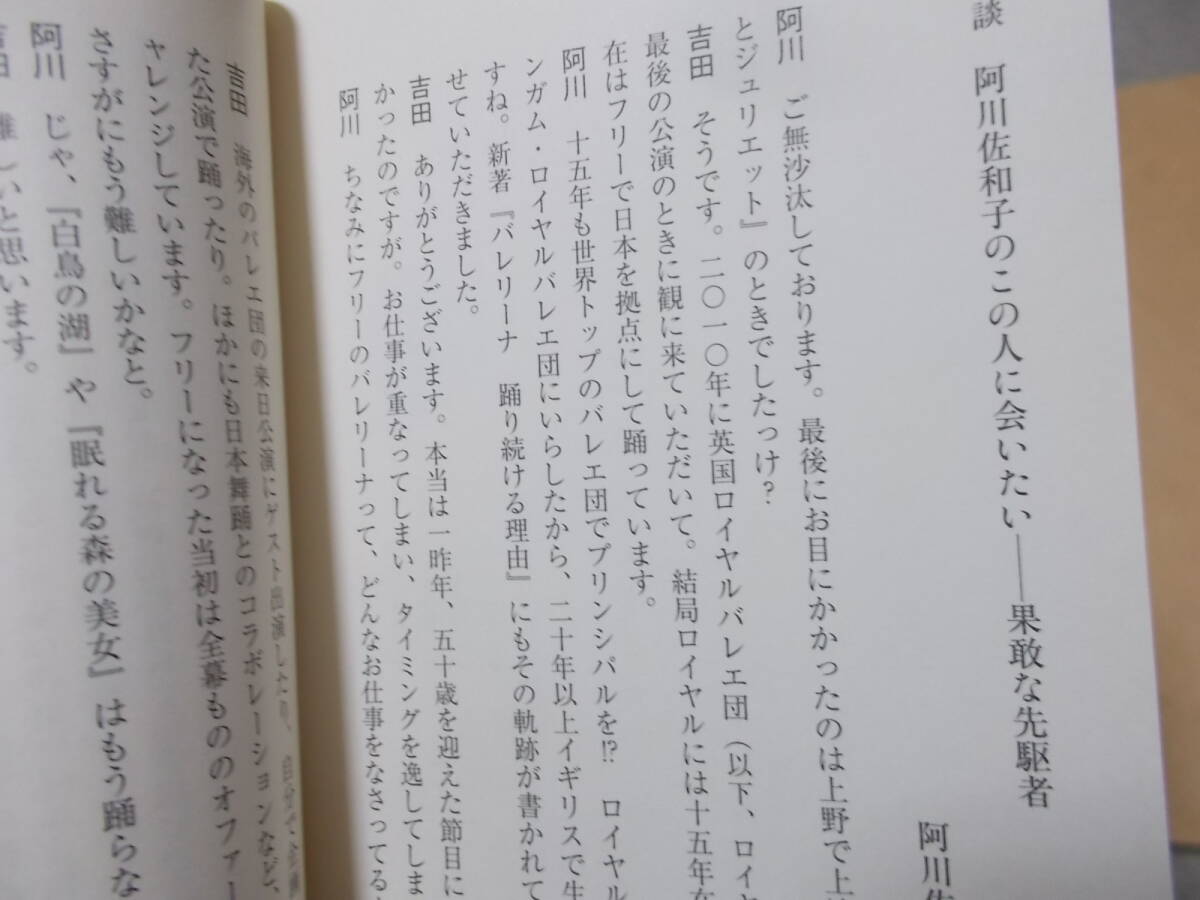 談　阿川佐和子のこの人に会いたい――果敢な先駆者
阿川
阿川　ご無沙汰しております。最後にお目にかかったのは上野で上
とジュリエット』のときでしたっけ？
吉田　そうです。二〇一〇年に英国ロイヤルバレエ団（以下、ロイ
最後の公演のときに観に来ていただいて。結局ロイヤルには十五年
在はフリーで日本を拠点にして踊っています。
阿川　十五年も世界トップのバレエ団でプリンシパルを!?　ロイヤル
ンガム・ロイヤルバレエ団にいらしたから、二十年以上イギリスで生
すね。新著『バレリーナ　踊り続ける理由』にもその軌跡が書かれて
せていただきました。
吉田　ありがとうございます。本当は一昨年、五十歳を迎えた節目に
かったのですが。お仕事が重なってしまい、タイミングを逸してしま
阿川　ちなみにフリーのバレリーナって、どんなお仕事をなさってる
吉田　海外のバレエ団の来日公演にゲスト出演したり、自分で
た公演で踊ったり。ほかにも日本舞踊とのコラボレーションなど、
ャレンジしています。フリーになった当初は全幕もののオファー
さすがにもう難しいかなと。
阿川　じゃ、『白鳥の湖』や『眠れる森の美女』はもう踊らな
吉田　難しいと思います。